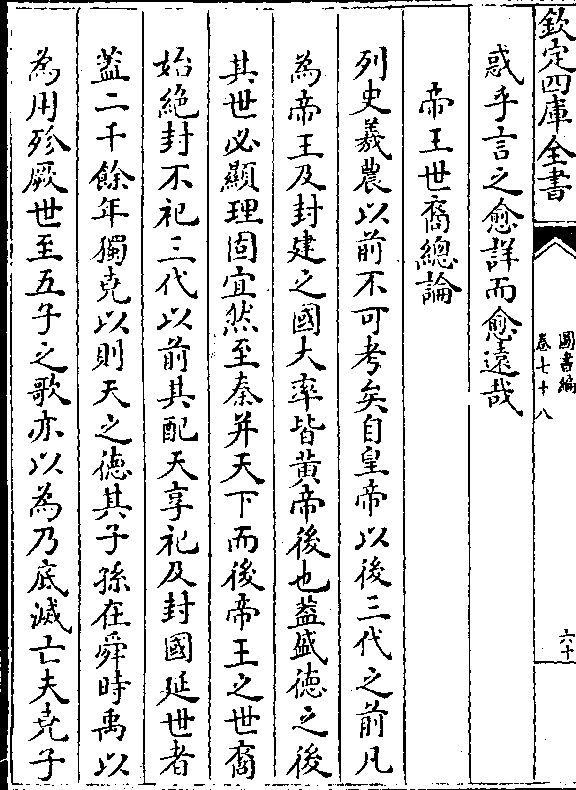 欽定四庫全書
圖書編
卷七十八
六十
惑乎言之愈詳而愈遠哉
帝王世裔總論
列史羲農以前不可考矣自皇帝以後三代之前凡
為帝王及封建之國大率皆黄帝後也葢盛德之後
其世必顯理固宜然至秦并天下而後帝王之世裔
始絶封不祀三代以前其配天享祀及封國延世者
葢二千餘年獨堯以則天之德其子孫在舜時禹以
為用殄厥世至五子之歌亦以為乃底滅亡夫堯子